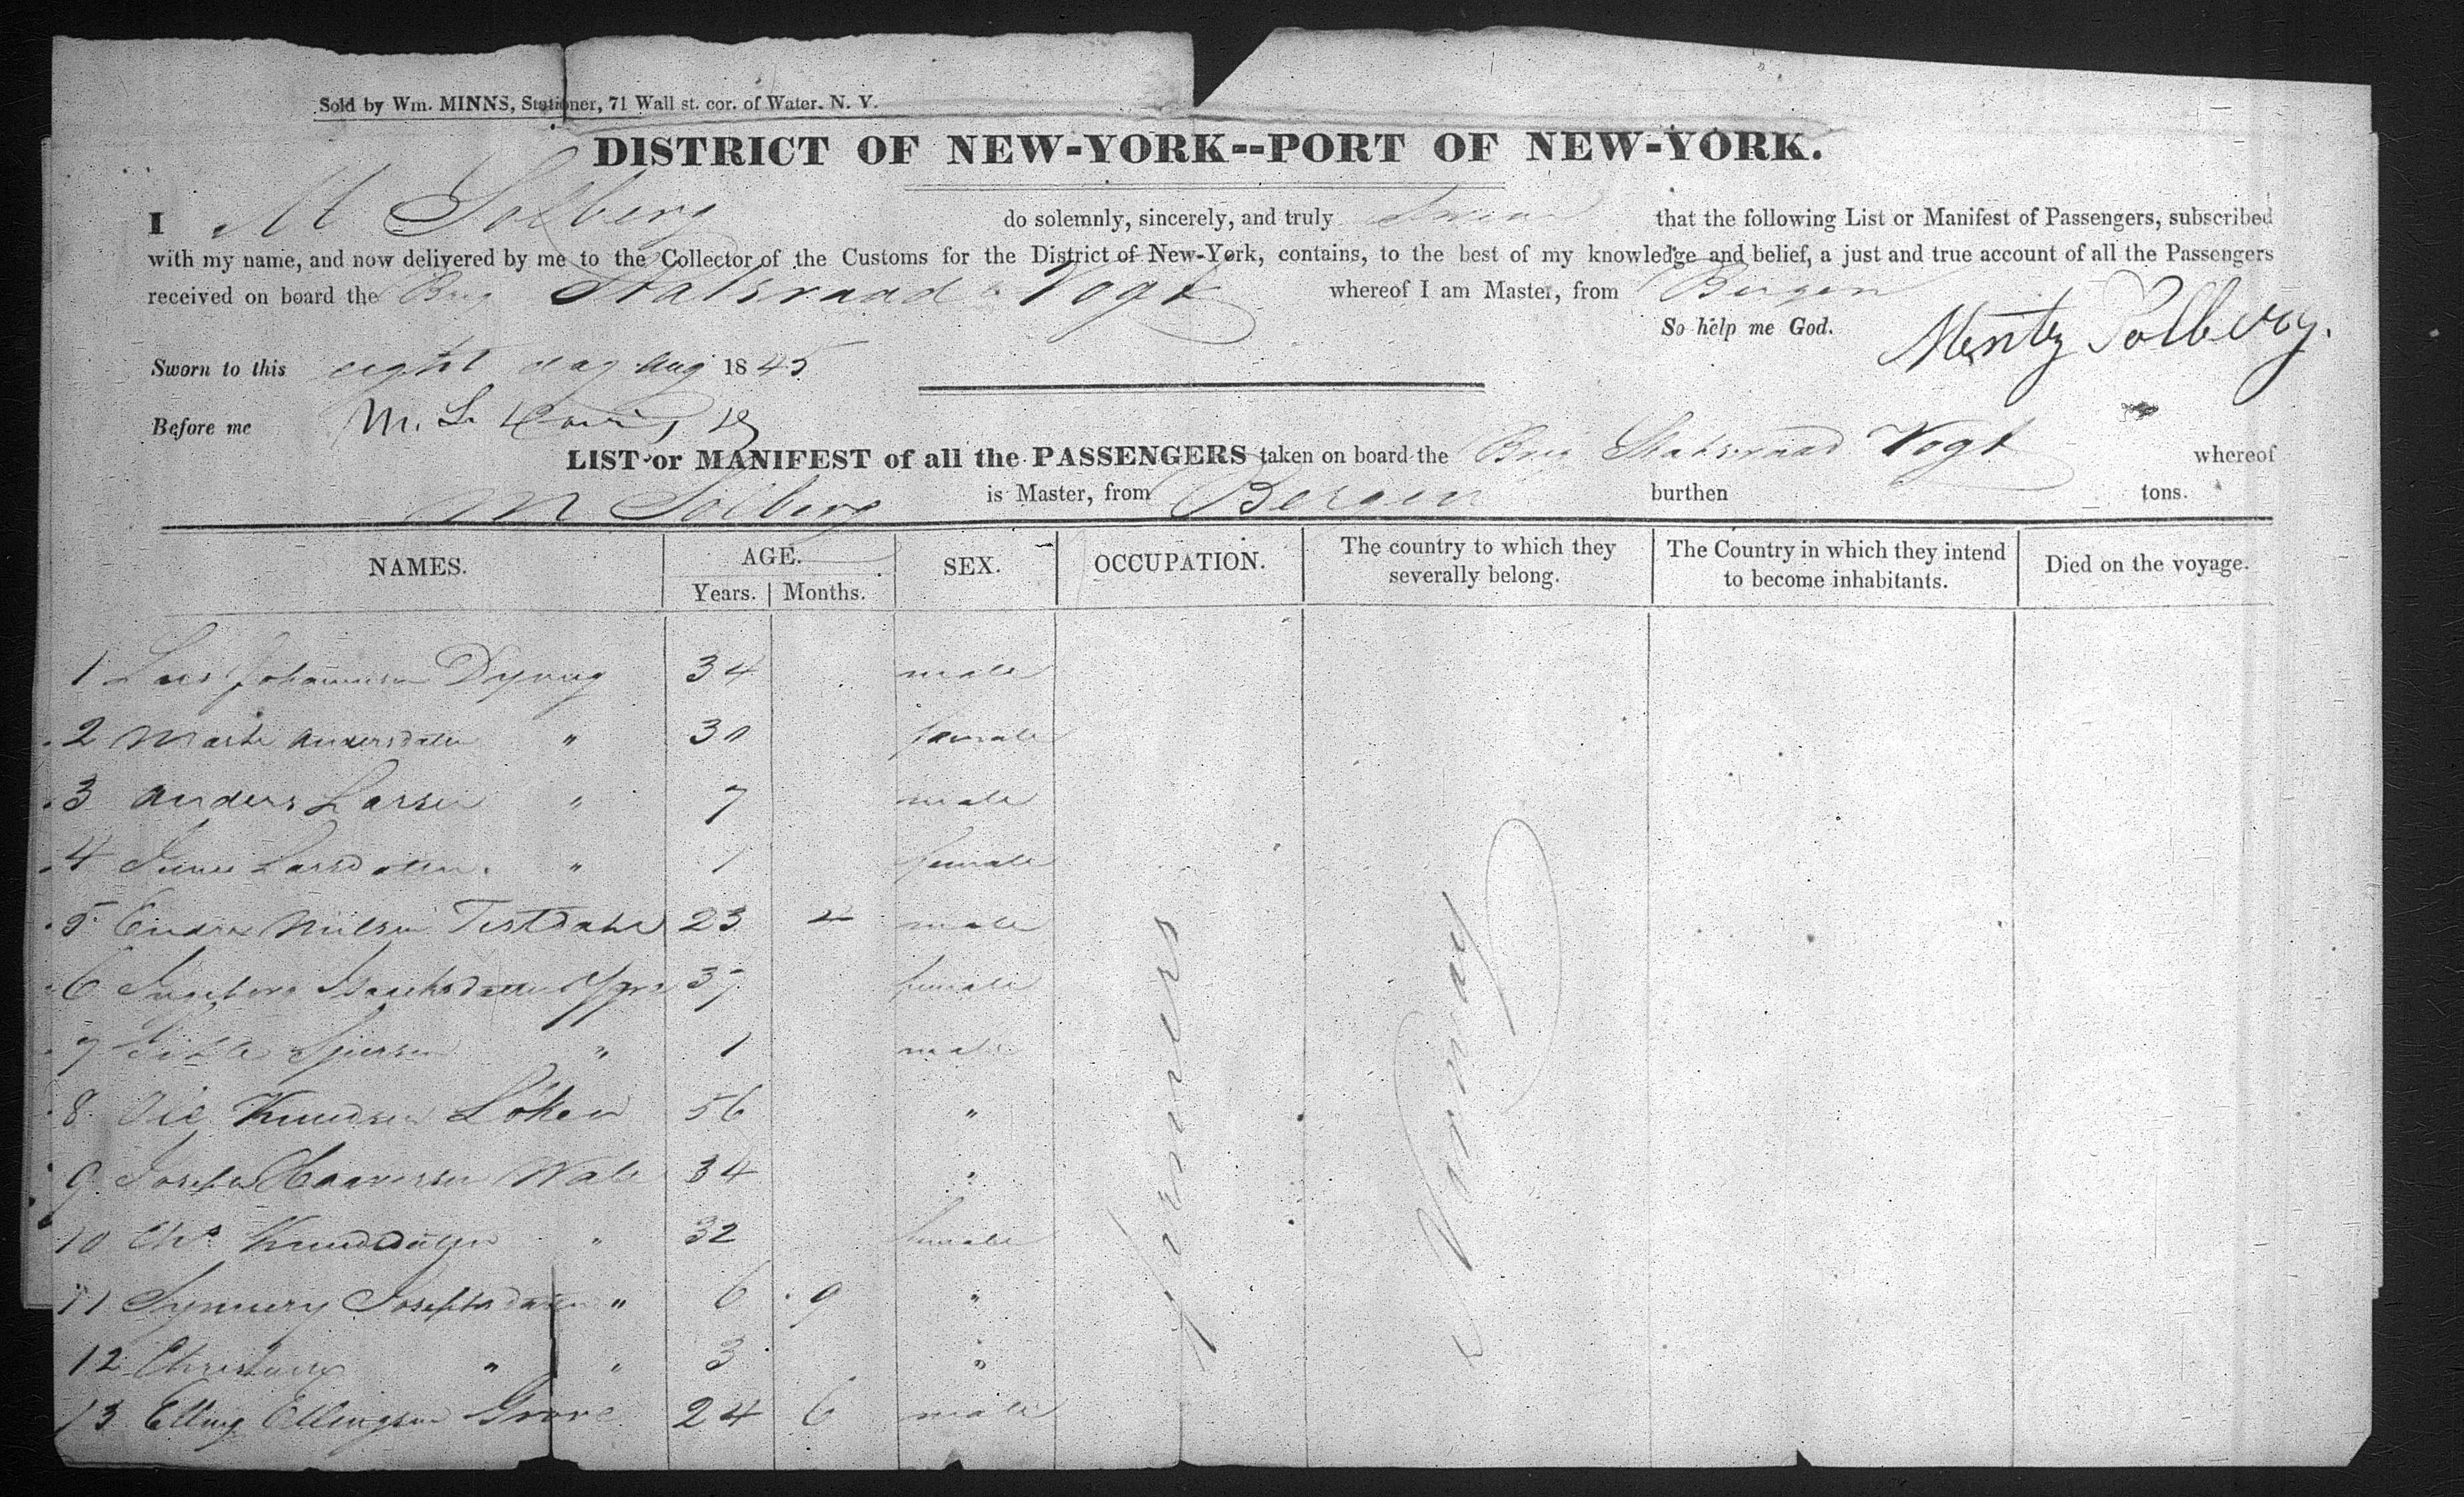 Sold by Wm. MINNS, Stationer, 71 Wall st. cor. of Water. N. Y.
DISTRICT OF NEW-YORK--PORT OF NEW-YORK.
I M Solberg do solemnly, sincerely, and truly Swear that the following List or Manifest of Passengers, subscribed
with my name, and now delivered by me to the Collector of the Customs for the District of New-York, contains, to the best of my knowledge and belief, a just and true account of all the Passengers
received on board the Brig Statsraad Vogt whereof I am Master, from Bergen
So help me God. Mentz Solberg.
Sworn to this eight day Aug 1845
Before me M. L.
LIST or MANIFEST of all the PASSENGERS taken on board the Brig Statsraad Vogt whereof
M Solberg is Master, from Bergen burthen tons.
NAMES. AGE. Years. Months. SEX. OCCUPATION. The country to which they severally belong. The Country in which they intend to become inhabitants. Died on the voyage.
1 Lars Johannesen 34 male
2 Andersdatter " 30 female
3 Anders Larsen " 7 male
4 Larsdatter " 1 female
5 Endre Nielsen 23 male
6 Ingeborg Isaachsdatter 37 female
7 " 1 male
8 Ole Knudsen Löken 56 "
9 Joseph 34 "
10 Chs Knudsdatter " 32 female
11 Synnery Josephsdatter " 6 9 "
12 " " 3 "
13 Elling Ellingsen Grove 24 6 male
farmers
Norway